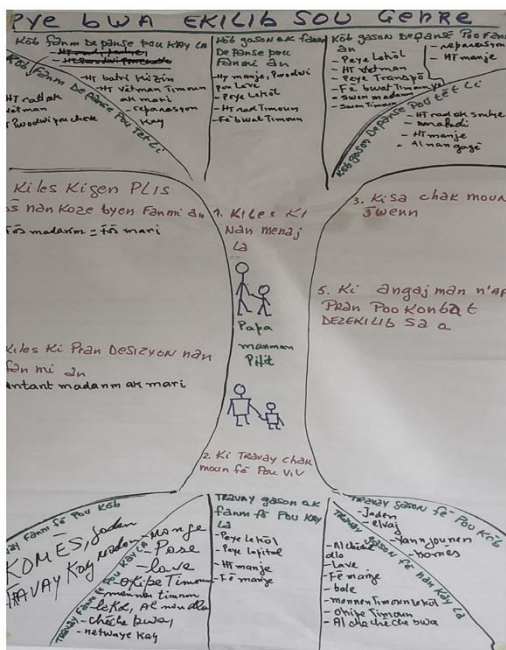 Pye bwa EKILIB SOU GENRE
Kòb Fanm Depanse pou Kay La
HT batri kizin
HT vètman Timoun
ak mari
reparasyon
kay
Kòb Fanm Depanse Pou Tèt Li
HT rad ak
vètman
Pwodwi pou cheve
Kòb gason ak fanm
Depanse pou
Fanmi an
HT manje, Pwodwi
pou Lave
Peye Lekòl
HT rad Timoun
Fè bwat Timoun
Kòb gason Depanse Pou Fanmi
an
Peye Lekòl
HT vètman
Peye Transpò
Fè bwat Timoun
Swen madanm
Swen Timoun
reparasyon
HT manje
Kòb gason Depanse Pou tèt Li
HT rad ak soulye
HT manje
Al nan gagè
Kiles Ki gen PLIS
nan Koze byen Fanmi an
Fòs madanm = Fòs mari
1. KILES KI
NAN MENAJ
LA
3. Kisa chak moun
Jwenn
Papa
manman
Pitit
5. Ki angajman n'ap
Pran Poo Konbat
DEZEKILIB Sa a
Kiles Ki Pran DESIZYON nan
Fanmi an
antant madanm ak mari
2. Ki TRAVAY Chak
moun fè Pou Viv
Travay Fanm Fè Pou Kòb
KOMÈS, Jaden
TRAVAY Kay
Travay Fanm Fè Pou Kay La
Manje
Pase
Lave
Okipe Timoun
mennen timoun
lekòl, Al nan dlo
chèche bwa
netwaye Kay
TRAVAY gason ak
fanm fè Pou Kay
LA
Peye Lekòl
Peye Lopital
HT manje
Fè manje
Travay gason fè Pou Kòb
Jaden
elvaj
vann jounen
komès
Travay gason fè nan Kay La
Al chèche
dlo
Lave
Fè manje
bale
mennen Timoun Lekòl
Okipe Timoun
Al chache chèche bwa